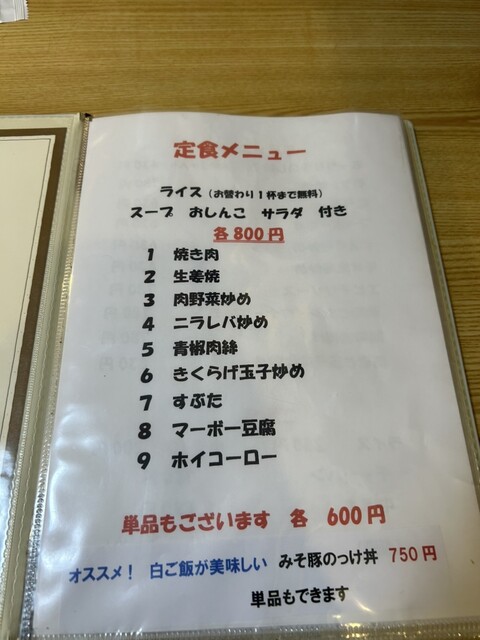 定食メニュー
ライス（お替わり１杯まで無料）
スープ　おしんこ　サラダ　付き
各800円
1　焼き肉
2　生姜焼
3　肉野菜炒め
4　ニラレバ炒め
5　青椒肉絲
6　きくらげ玉子炒め
7　すぶた
8　マーボー豆腐
9　ホイコーロー
単品もございます　各　600円
オススメ！　白ご飯が美味しい　みそ豚のっけ丼　750円
単品もできます